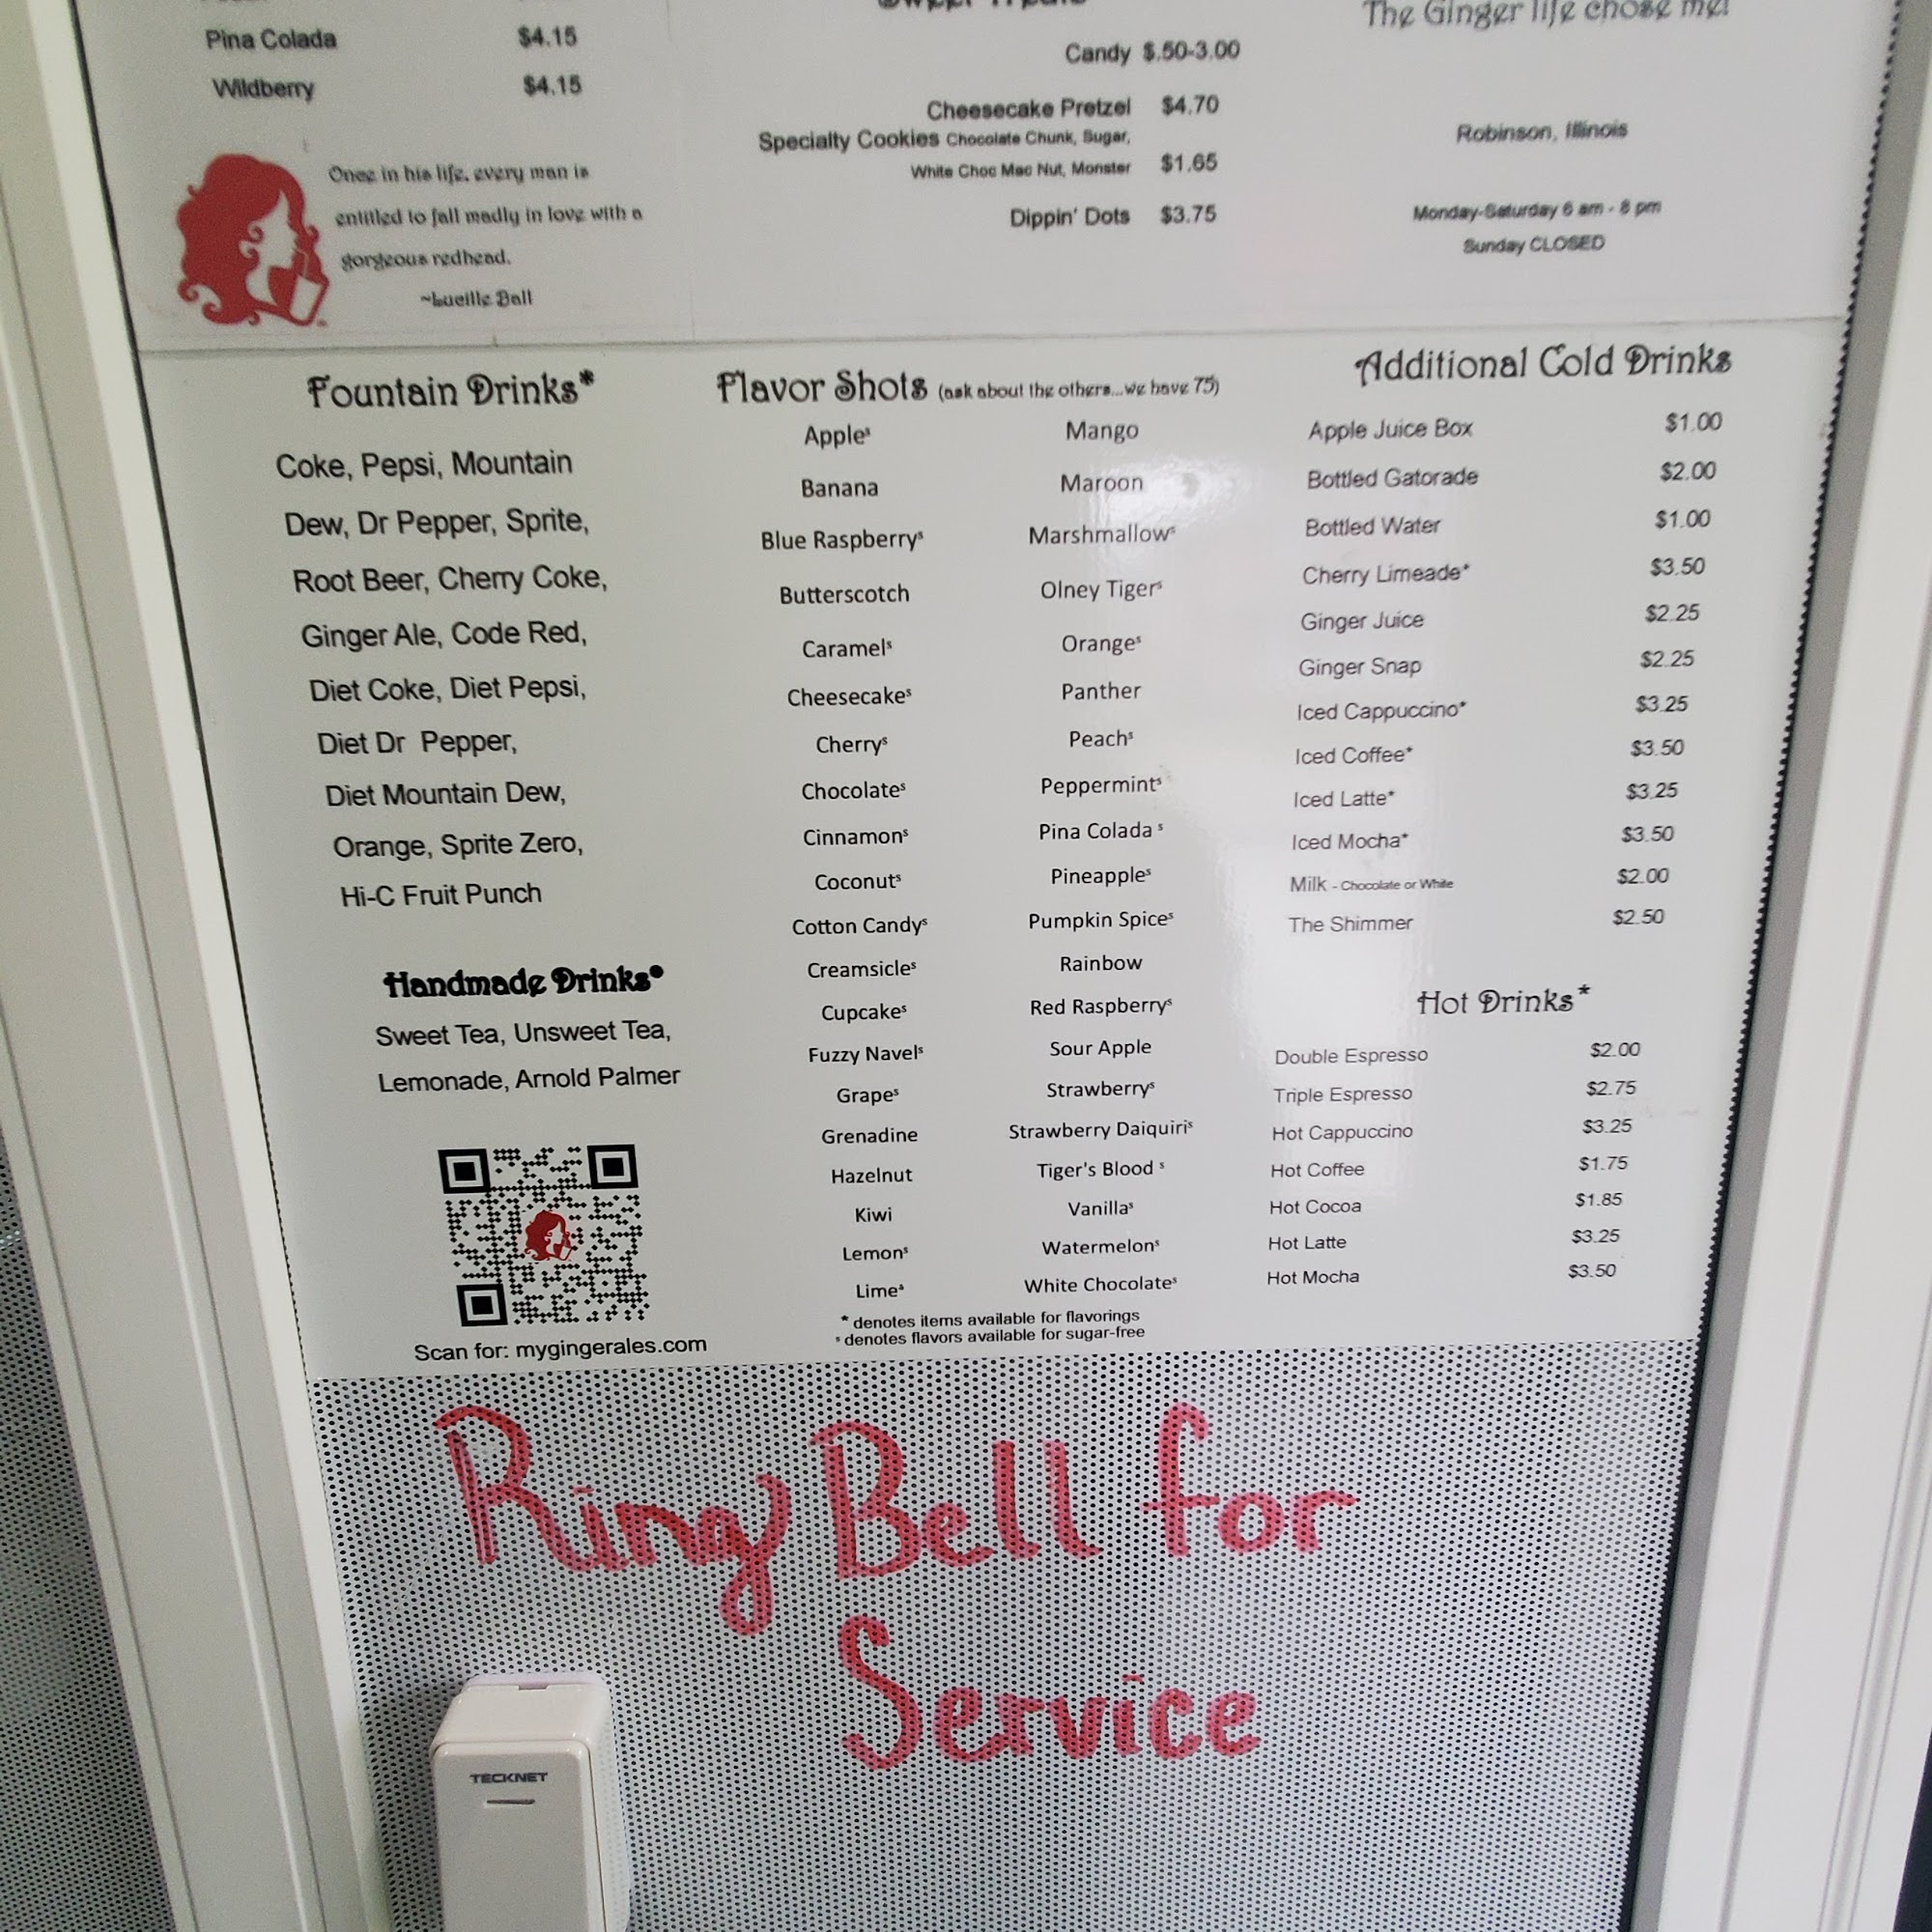 Pina Colada $4.15
Wildberry $4.15
Once in his life, every man is
entitled to fall madly in love with a
gorgeous redhead.
~Lucille Ball
Candy $.50-3.00
Cheesecake Pretzel $4.70
Specialty Cookies Chocolate Chunk, Sugar,
White Choc Mac Nut, Monster $1.65
Dippin' Dots $3.75
The Ginger life chose me!
Robinson, Illinois
Monday-Saturday 6 am - 8 pm
Sunday CLOSED
Fountain Drinks*
Coke, Pepsi, Mountain
Dew, Dr Pepper, Sprite,
Root Beer, Cherry Coke,
Ginger Ale, Code Red,
Diet Coke, Diet Pepsi,
Diet Dr Pepper,
Diet Mountain Dew,
Orange, Sprite Zero,
Hi-C Fruit Punch
Handmade Drinks•
Sweet Tea, Unsweet Tea,
Lemonade, Arnold Palmer
Scan for: mygingerales.com
Flavor Shots (ask about the others...we have 75)
Appleˢ Mango
Banana Maroon
Blue Raspberryˢ Marshmallowˢ
Butterscotch Olney Tigerˢ
Caramelˢ Orangeˢ
Cheesecakeˢ Panther
Cherryˢ Peachˢ
Chocolateˢ Peppermintˢ
Cinnamonˢ Pina Colada ˢ
Coconutˢ Pineappleˢ
Cotton Candyˢ Pumpkin Spiceˢ
Creamsicleˢ Rainbow
Cupcakeˢ Red Raspberryˢ
Fuzzy Navelˢ Sour Apple
Grapeˢ Strawberryˢ
Grenadine Strawberry Daiquiriˢ
Hazelnut Tiger's Blood ˢ
Kiwi Vanillaˢ
Lemonˢ Watermelonˢ
Limeˢ White Chocolateˢ
* denotes items available for flavorings
ˢ denotes flavors available for sugar-free
Additional Cold Drinks
Apple Juice Box $1.00
Bottled Gatorade $2.00
Bottled Water $1.00
Cherry Limeade* $3.50
Ginger Juice $2.25
Ginger Snap $2.25
Iced Cappuccino* $3.25
Iced Coffee* $3.50
Iced Latte* $3.25
Iced Mocha* $3.50
Milk - Chocolate or White $2.00
The Shimmer $2.50
Hot Drinks*
Double Espresso $2.00
Triple Espresso $2.75
Hot Cappuccino $3.25
Hot Coffee $1.75
Hot Cocoa $1.85
Hot Latte $3.25
Hot Mocha $3.50
Ring Bell for
Service
TECKNET